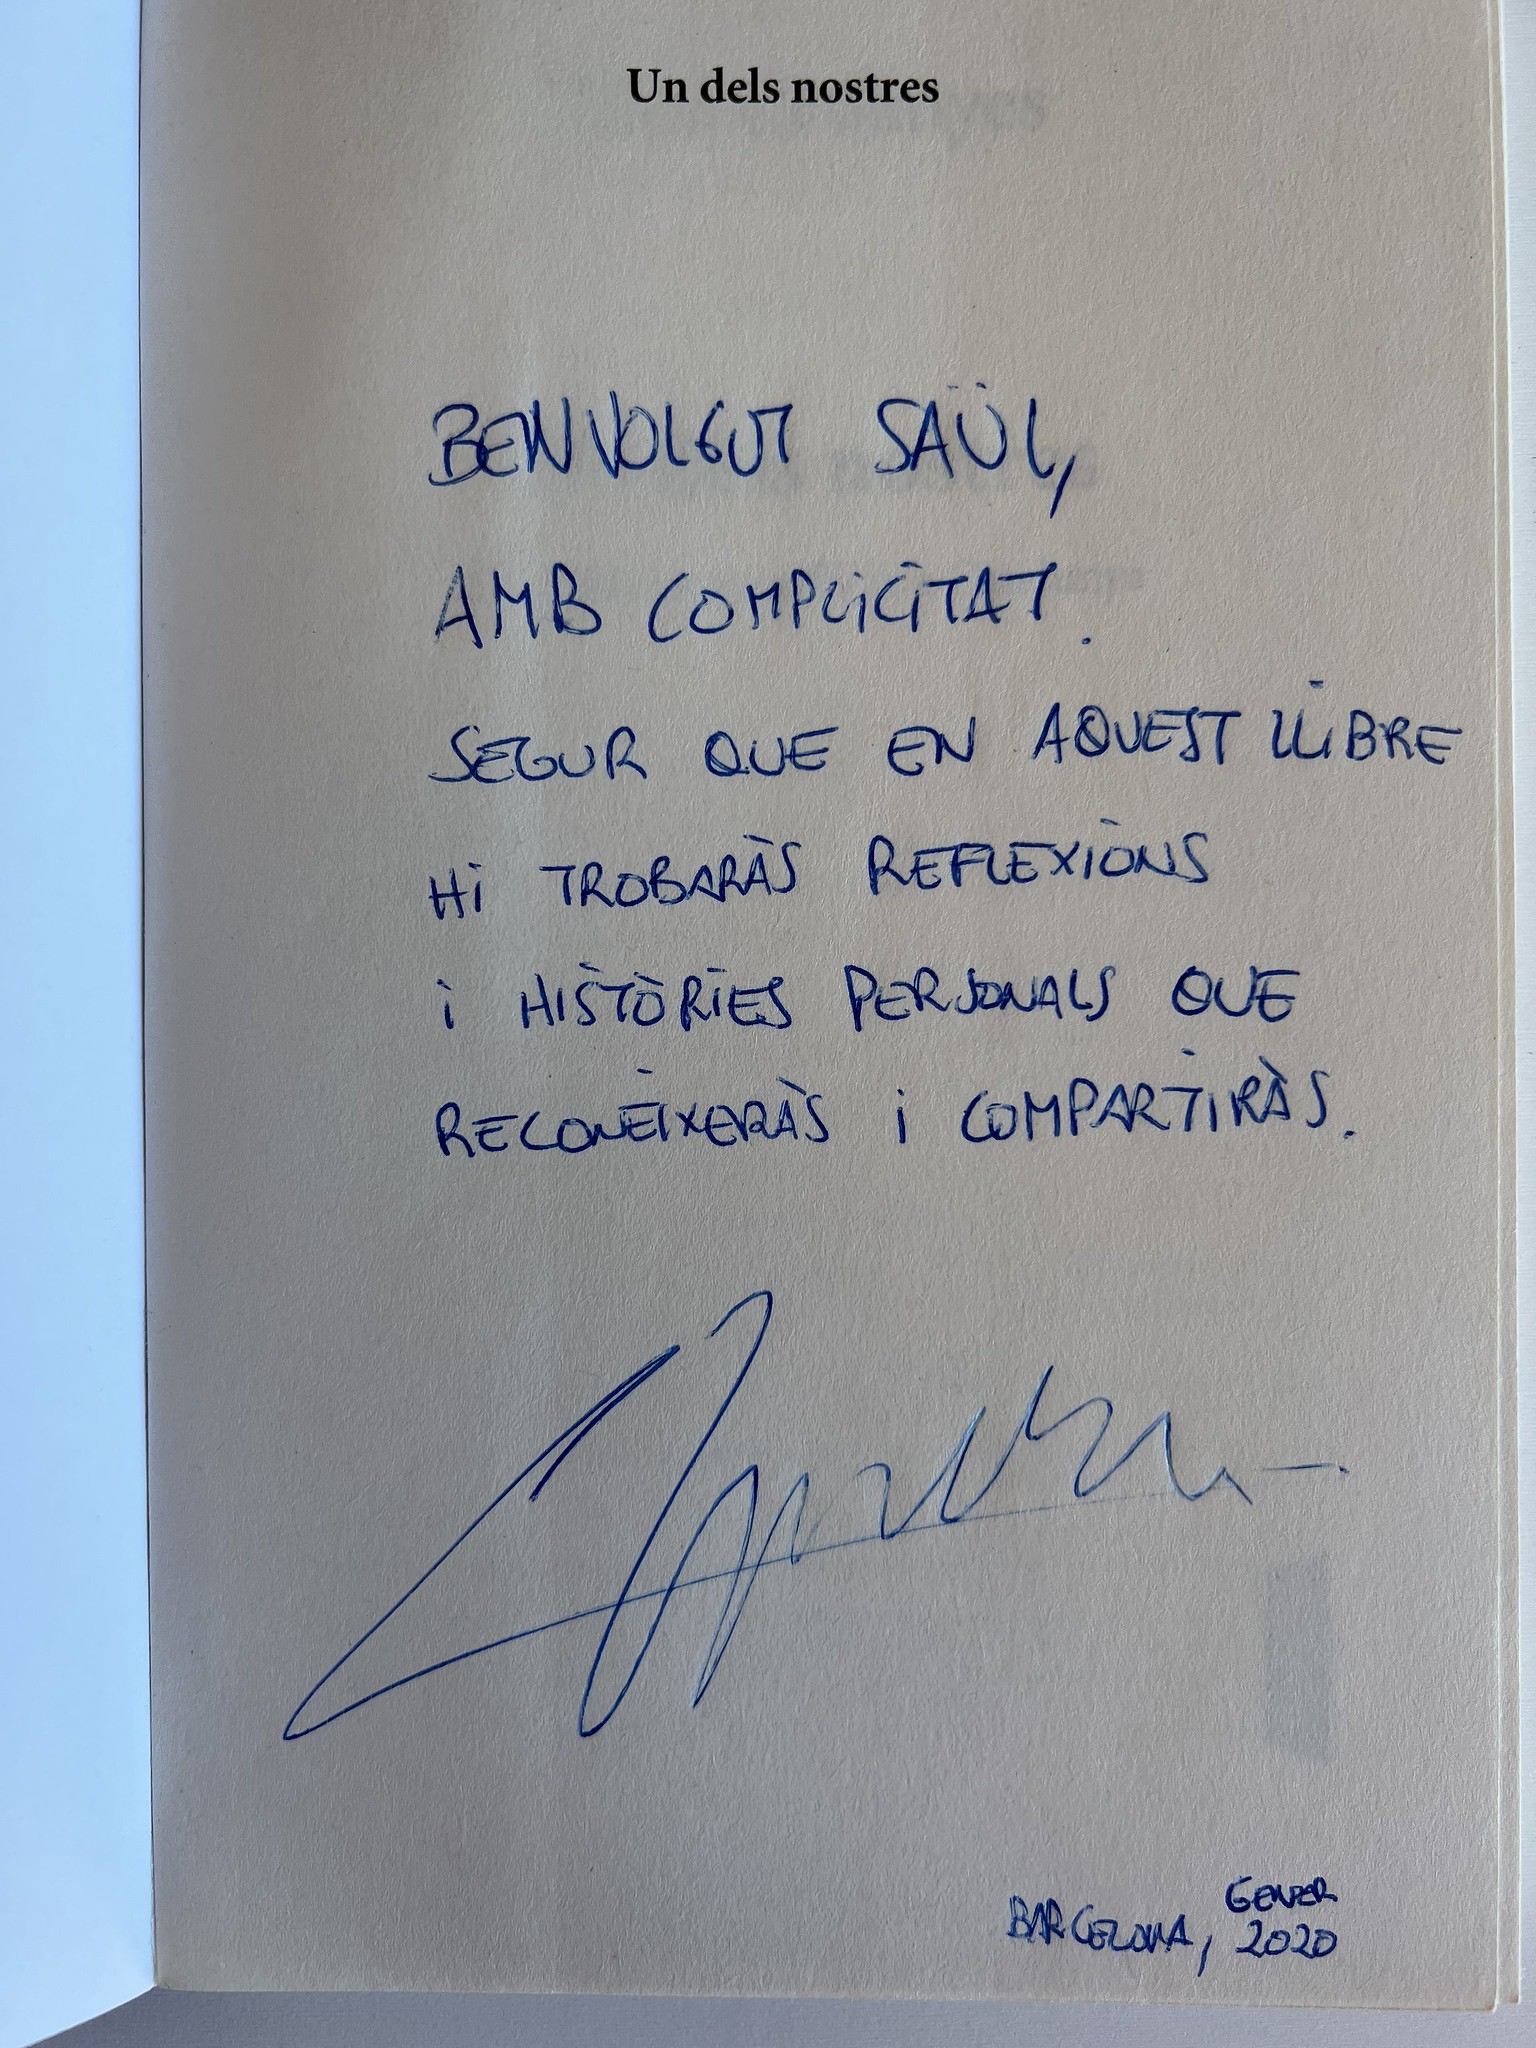 Un dels nostres
BENVOLGUT SAÜL,
AMB COMPLICITAT.
SEGUR QUE EN AQUEST LLIBRE
HI TROBARÀS REFLEXIONS
I HISTÒRIES PERSONALS QUE
RECONEIXERÀS I COMPARTIRÀS.
BARCELONA, GENER
2020